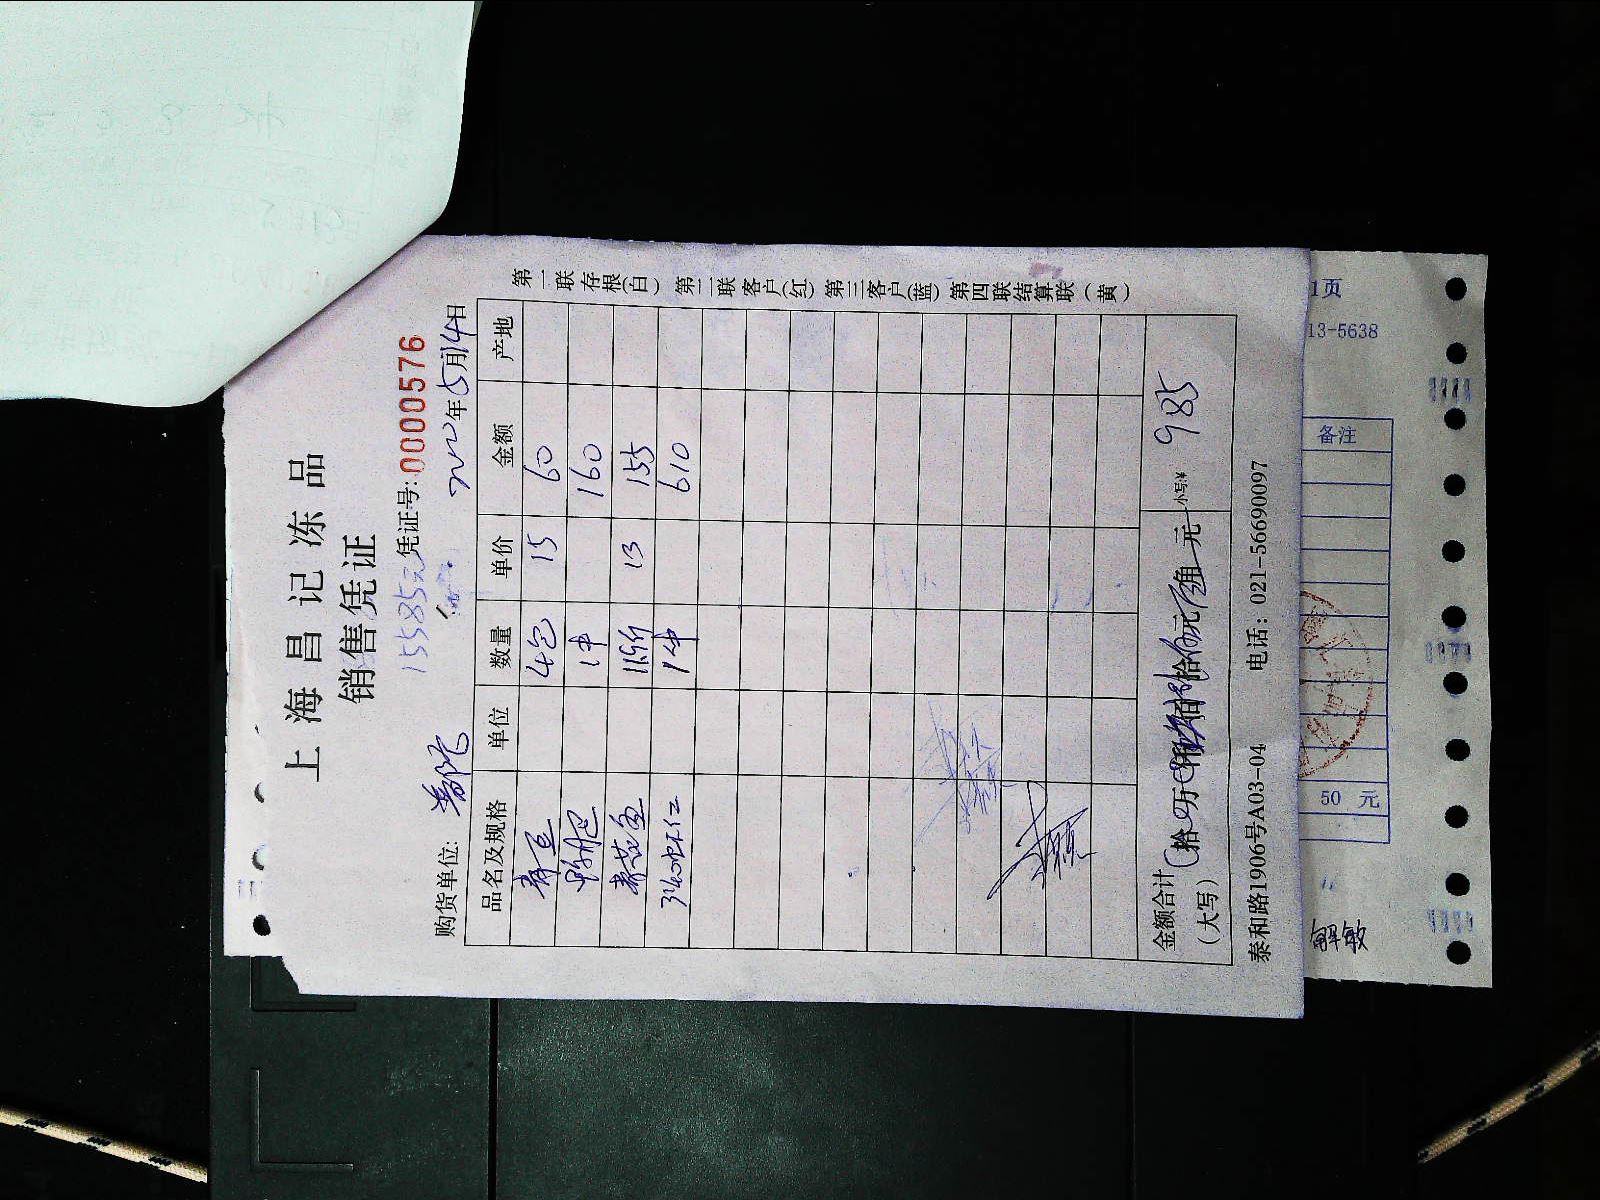 上海昌记冻品
销售凭证
15585元
凭证号:0000576
购货单位:
年5月14日
品名及规格 单位 数量 单价 金额 产地
青豆 4包 15 60
1件 160
青花鱼 13 155
340虾仁 1件 610
金额合计(大写) 拾 万 仟 佰 拾 元 角 元 小写:¥ 985
泰和路1906号A03-04 电话: 021-56690097
第一联存根(白) 第二联客户(红) 第三客户(蓝) 第四联结算联(黄)
1页
13-5638
备注
50 元
解敏